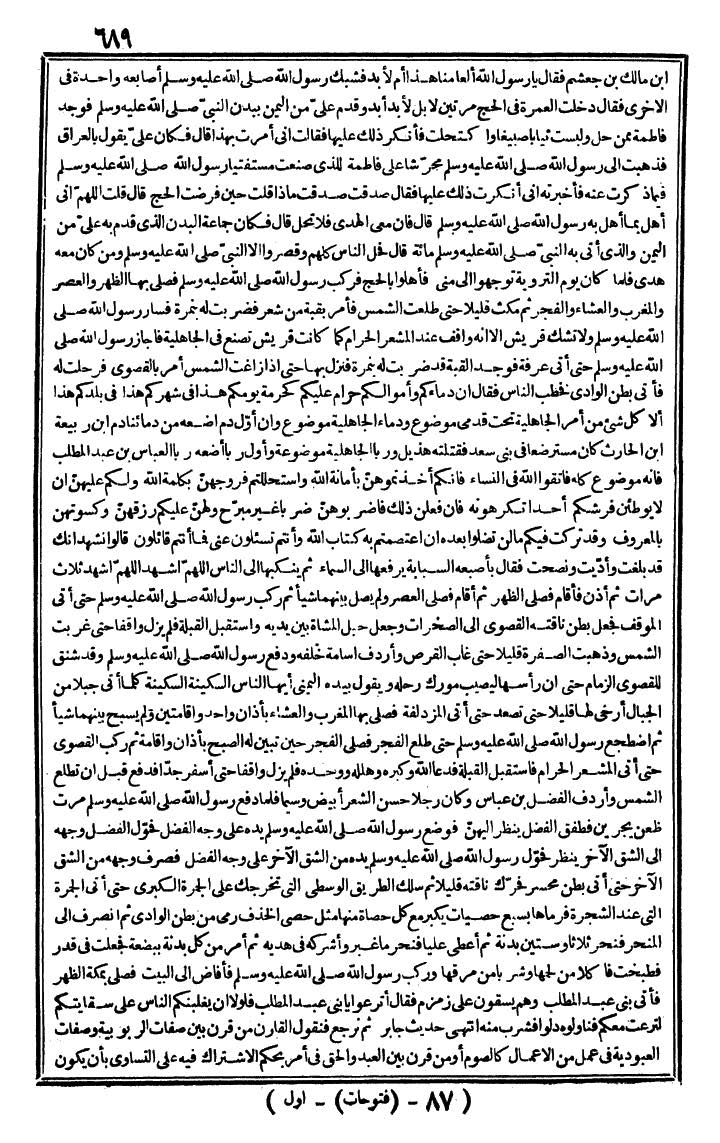 ٦٨٩
ابن مالك بن جعشم فقال يارسول الله ألعامنا هذا أم لأبد فشبك رسول الله صلى الله عليه وسلم أصابعه واحدة فى
الاخرى فقال دخلت العمرة فى الحج مرتين لا بل لأبد أبد وقدم علىّ من اليمن ببدن النبىّ صلى الله عليه وسلم فوجد
فاطمة ممن حل ولبست ثيابا صبيغا واكتحلت فأنكر ذلك عليها فقالت انى أمرت بهذا قال فكان علىّ يقول بالعراق
فذهبت الى رسول الله صلى الله عليه وسلم محرّشا على فاطمة للذى صنعت مستفتيا رسول الله صلى الله عليه وسلم
فيما ذكرت عنه فأخبرته انى أنكرت ذلك عليها فقال صدقت صدقت ماذا قلت حين فرضت الحج قال قلت اللهمّ انى
أهل بما أهل به رسول الله صلى الله عليه وسلم قال فان معى الهدى فلا تحل قال فكان جماعة البدن الذى قدم به علىّ من
اليمن والذى أتى به النبىّ صلى الله عليه وسلم مائة قال فحل الناس كلهم وقصروا الا النبىّ صلى الله عليه وسلم ومن كان معه
هدى فلما كان يوم التروية توجهوا الى منى فأهلوا بالحج فركب رسول الله صلى الله عليه وسلم فصلى بها الظهر والعصر
والمغرب والعشاء والفجر ثم مكث قليلا حتى طلعت الشمس فأمر بقبة من شعر فضربت له بنمرة فسار رسول الله صلى
الله عليه وسلم ولا تشك قريش الا انه واقف عند المشعر الحرام كما كانت قريش تصنع فى الجاهلية فاجاز رسول الله صلى
الله عليه وسلم حتى أتى عرفة فوجد القبة قد ضربت له بنمرة فنزل بها حتى اذا زاغت الشمس أمر بالقصوى فرحلت له
فأتى بطن الوادى فخطب الناس فقال ان دماءكم وأموالكم حرام عليكم كحرمة يومكم هذا فى شهركم هذا فى بلدكم هذا
ألا كل شئ من أمر الجاهلية تحت قدمى موضوع ودماء الجاهلية موضوع وان أوّل دم اضعه من دمائنا دم ابن ربيعة
ابن الحارث كان مسترضعا فى بنى سعد فقتلته هذيل وربا الجاهلية موضوعة وأول ربا أضعه ربا العباس بن عبد المطلب
فانه موضوع كله فاتقوا الله فى النساء فانكم أخذتموهنّ بأمانة الله واستحللتم فروجهنّ بكلمة الله ولكم عليهنّ ان
لا يوطئن فرشكم أحدا تكرهونه فان فعلن ذلك فاضربوهنّ ضربا غير مبرّح ولهنّ عليكم رزقهنّ وكسوتهن
بالمعروف وقد تركت فيكم ما لن تضلوا بعده ان اعتصمتم به كتاب الله وأنتم تسئلون عنى فما أنتم قائلون قالوا نشهد انك
قد بلغت وأدّيت ونصحت فقال بأصبعه السبابة يرفعها الى السماء ثم ينكبها الى الناس اللهمّ اشهد اللهمّ اشهد ثلاث
مرات ثم أذن فأقام فصلى الظهر ثم أقام فصلى العصر ولم يصل بينهما شيأ ثم ركب رسول الله صلى الله عليه وسلم حتى أتى
الموقف فجعل بطن ناقته القصوى الى الصخرات وجعل حبل المشاة بين يديه واستقبل القبلة فلم يزل واقفا حتى غربت
الشمس وذهبت الصفرة قليلا حتى غاب القرص وأردف اسامة خلفه ودفع رسول الله صلى الله عليه وسلم وقد شنق
للقصوى الزمام حتى ان رأسها ليصيب مورك رحله ويقول بيده اليمنى أيها الناس السكينة السكينة كلما أتى جبلا من
الجبال أرخى لها قليلا حتى تصعد حتى أتى المزدلفة فصلى بها المغرب والعشاء بأذان واحد واقامتين ولم يسبح بينهما شيأ
ثم اضطجع رسول الله صلى الله عليه وسلم حتى طلع الفجر فصلى الفجر حين تبين له الصبح بأذان واقامة ثم ركب القصوى
حتى أتى المشعر الحرام فاستقبل القبلة فدعا الله وكبره وهلله ووحده فلم يزل واقفا حتى أسفر جدّا فدفع قبل ان تطلع
الشمس وأردف الفضل بن عباس وكان رجلا حسن الشعر أبيض وسيما فلما دفع رسول الله صلى الله عليه وسلم مرت
ظعن يجرين فطفق الفضل ينظر اليهنّ فوضع رسول الله صلى الله عليه وسلم يده على وجه الفضل فحوّل الفضل وجهه
الى الشق الآخر ينظر فحوّل رسول الله صلى الله عليه وسلم يده من الشق الآخر على وجه الفضل فصرف وجهه من الشق
الآخر حتى أتى بطن محسر فحرّك ناقته قليلا ثم سلك الطريق الوسطى التى تخرجك على الجمرة الكبرى حتى أتى الجمرة
التى عند الشجرة فرماها بسبع حصيات يكبر مع كل حصاة منها مثل حصى الخذف رمى من بطن الوادى ثم انصرف الى
المنحر فنحر ثلاثا وستين بدنة ثم أعطى عليا فنحر ما غبر وأشركه فى هديه ثم أمر من كل بدنة ببضعة فجعلت فى قدر
فطبخت فاكلا من لحمها وشربا من مرقها وركب رسول الله صلى الله عليه وسلم فأفاض الى البيت فصلى بمكة الظهر
فأتى بنى عبد المطلب وهم يسقون على زمزم فقال أترعوا يا بنى عبد المطلب فلولا ان يغلبنكم الناس على سقايتكم
لترعت معكم فناولوه دلوا فشرب منه انتهى حديث جابر ثم نرجع فنقول القارن من قرن بين صفات الربوبية وصفات
العبودية فى عمل من الاعمال كالصوم أو من قرن بين العبد والحق فى أمر بحكم الاشتراك فيه على التساوى بأن يكون
( ٨٧ - (فتوحات) - اول )